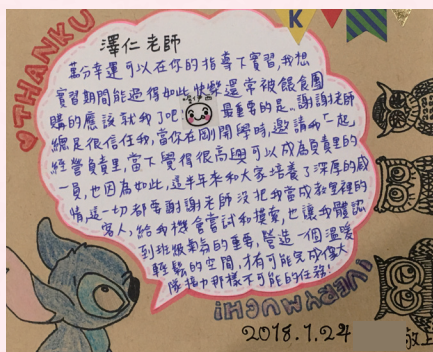 THANKU
K
澤仁老師
萬分幸運可以在你的指導下實習,我想
實習期間能過得如此快樂還常被餵食團
購的應該就我了吧 最重要的是..謝謝老師
總是很信任我,當你在剛開學時,邀請我一起
經營負責里,當下覺得很高興可以成為負責里的
一員,也因為如此,這半年來和大家培養了深厚的感
情,這一切都要謝謝老師沒把我當成教室裡的
客人,給我機會嘗試和摸索,也讓我體認
到班級氣氛的重要,營造一個溫暖
輕鬆的空間,才有可能完成像大
隊接力那樣不可能的任務!
VERYMUCH!
2018.1.24 敬上